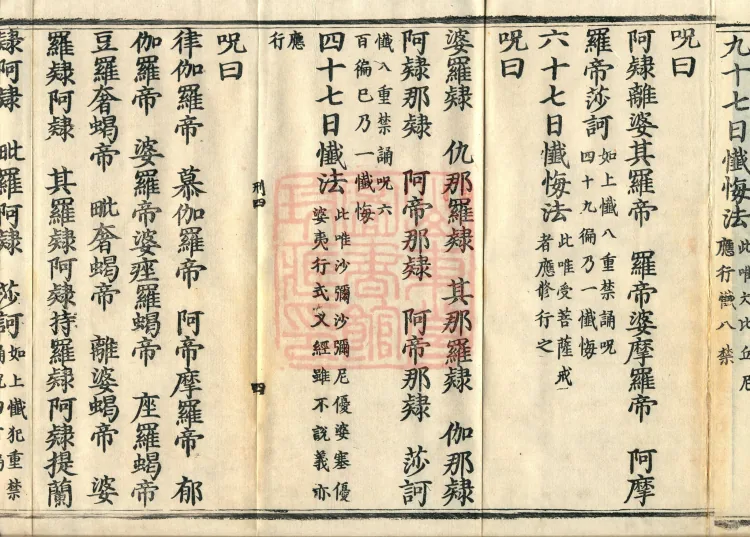 九十七日懺悔法
此唯大比丘尼
應行懺八禁
呪曰
阿隸離婆其羅帝　羅帝婆摩羅帝　阿摩
羅帝莎訶
如上懺八重禁誦呪
四十九徧乃一懺悔
六十七日懺悔法
此唯受菩薩戒
者應修行之
呪曰
婆羅隸　仇那羅隸　其那羅隸　伽那隸
阿隸那隸　阿帝那隸　阿帝那隸　莎訶
懺八重禁誦呪六
百徧已乃一懺悔
四十七日懺法
此唯沙彌沙彌尼優婆塞優
婆夷行式叉經雖不說義亦
應
行
刑四　四
呪曰
律伽羅帝　慕伽羅帝　阿帝摩羅帝　郁
伽羅帝　婆羅帝婆座羅蝎帝　座羅蝎帝
豆羅奢蝎帝　毗奢蝎帝　離婆蝎帝　婆
羅隸阿隸　其羅隸阿隸持羅隸阿隸提蘭
隸阿隸　毗羅阿隸　莎訶
如上懺犯重禁